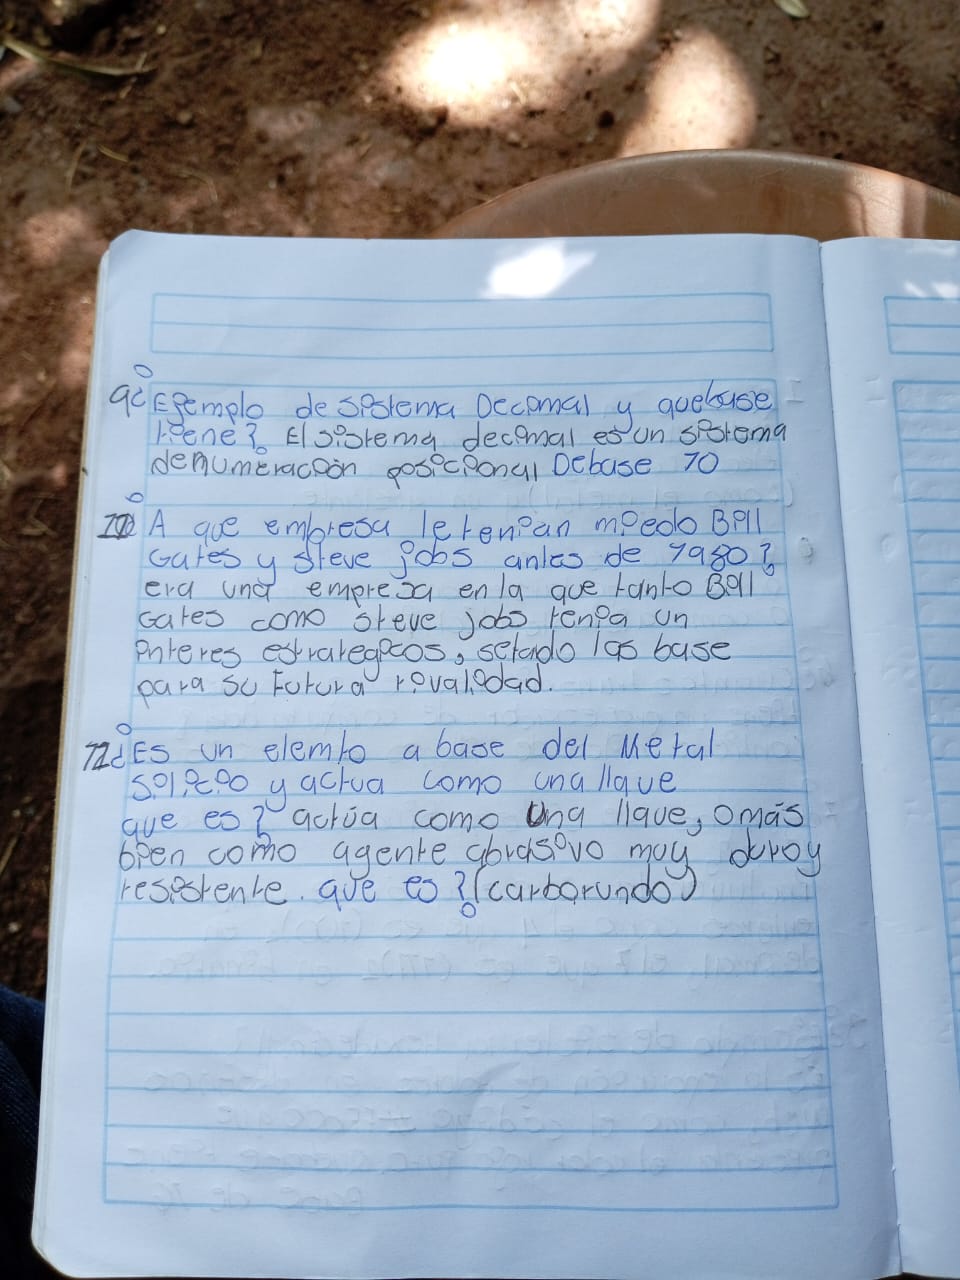 9¿Ejemplo de sistema Decimal y quebase
tiene? El sistema decimal es un sistema
denumeración posicional Debase 10
10¿ A que empresa letenian miedo Bill
Gates y steve jobs antes de 1980?
era una empresa en la que tanto Bill
Gates como steve jobs tenia un
interes estrategicos, setado las base
para su Futura rivalidad.
11¿Es un elemto a base del Metal
silicio y actua como una llave
que es? actúa como una llave, o más
bien como agente abrasivo muy duro y
resistente. que es? (carborundo)